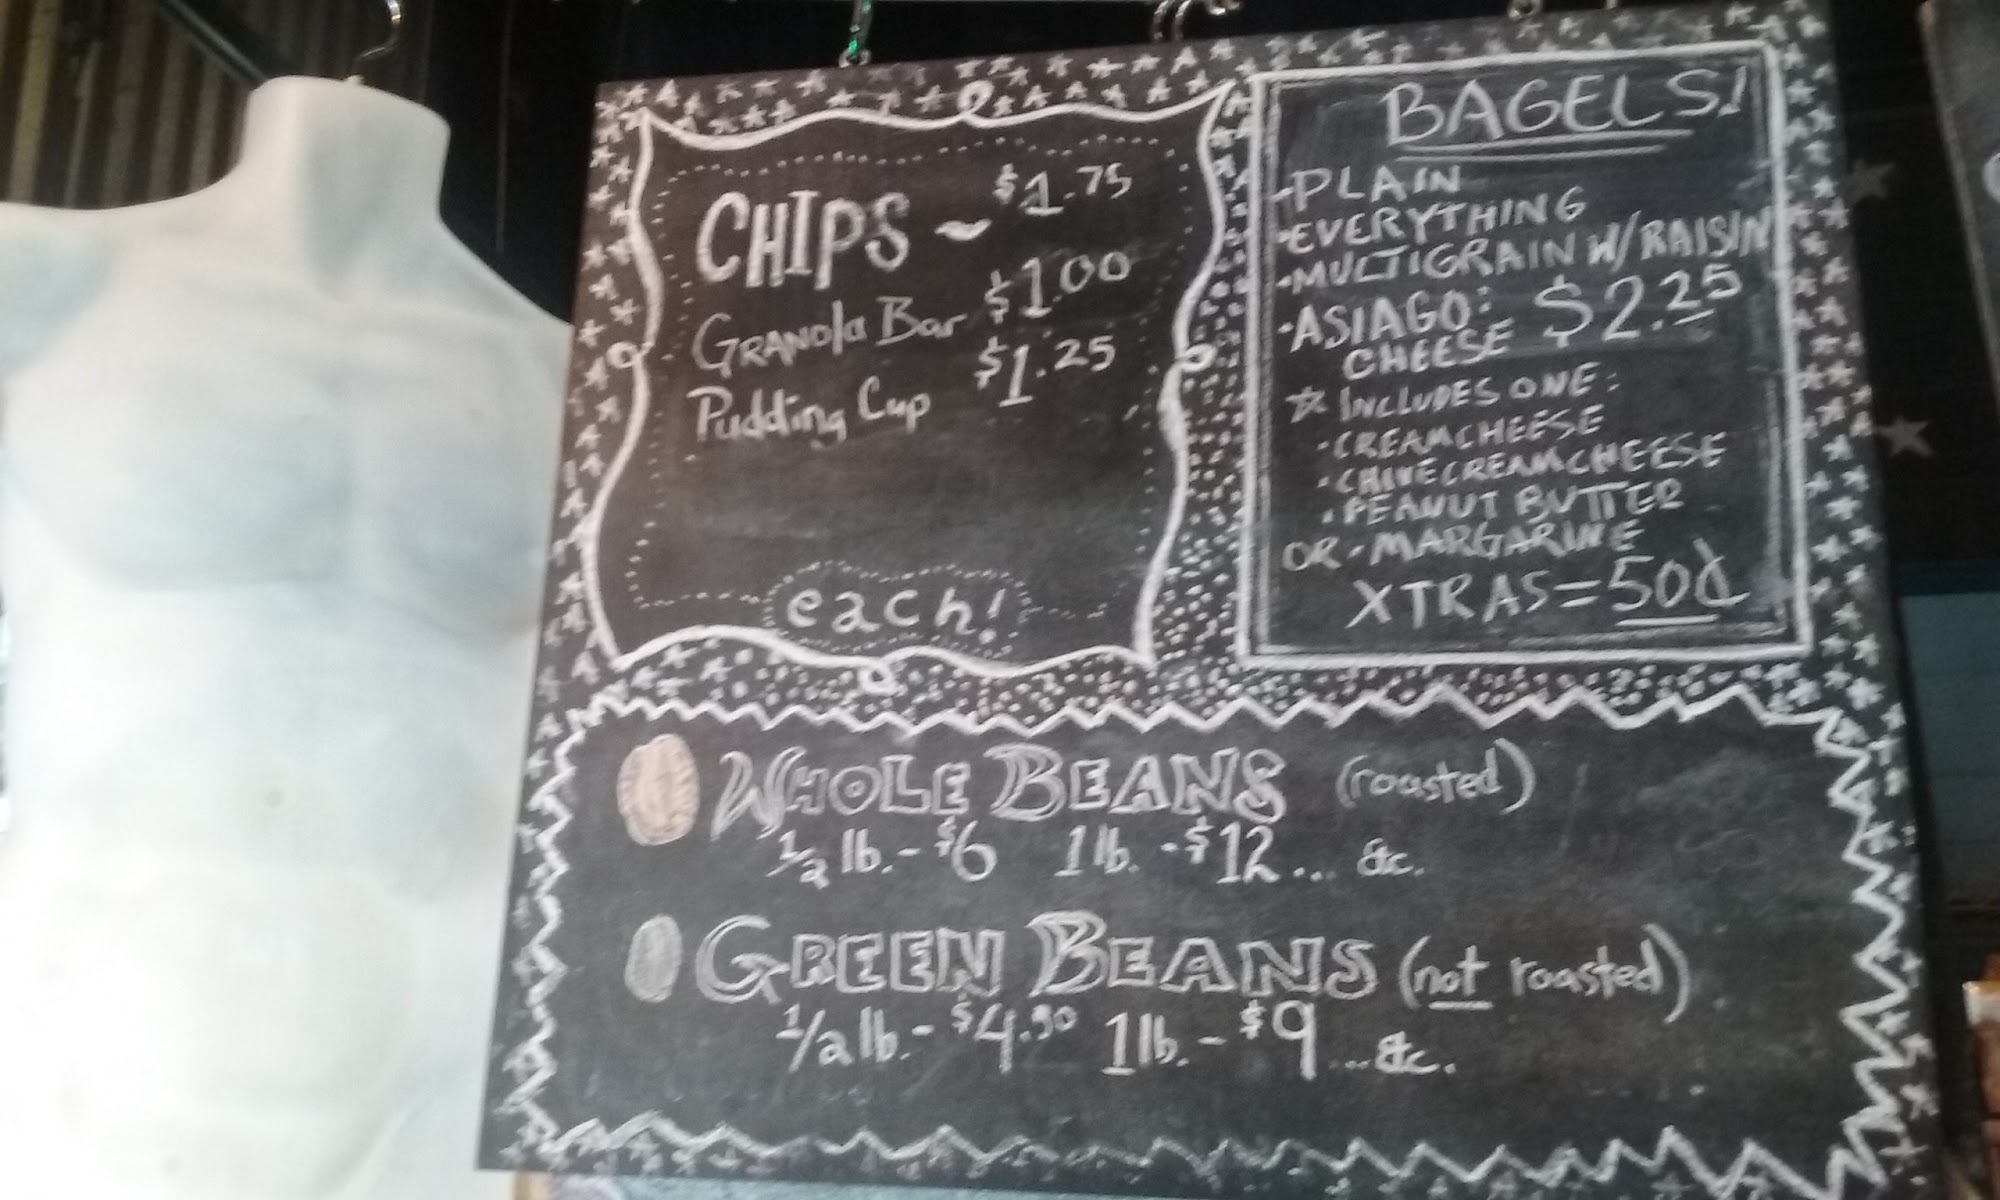 CHIPS ~ $1.75
GRANOla Bar $1.00
Pudding Cup $1.25
each!
BAGELS!
-PLAIN
•EVERYTHING
•MULTIGRAIN W/RAISIN
•ASIAGO: $2.25
CHEESE
☆ INCLUDES ONE:
•CREAMCHEESE
•CHIVECREAMCHEESE
•PEANUT BUTTER
OR•MARGARINE
XTRAS=50¢
WHOLE BEANS (roasted)
1/2 lb.- $6 1 lb. -$12... &c.
GREEN BEANS (not roasted)
1/2 lb.- $4.50 1 lb.- $9 ...&c.